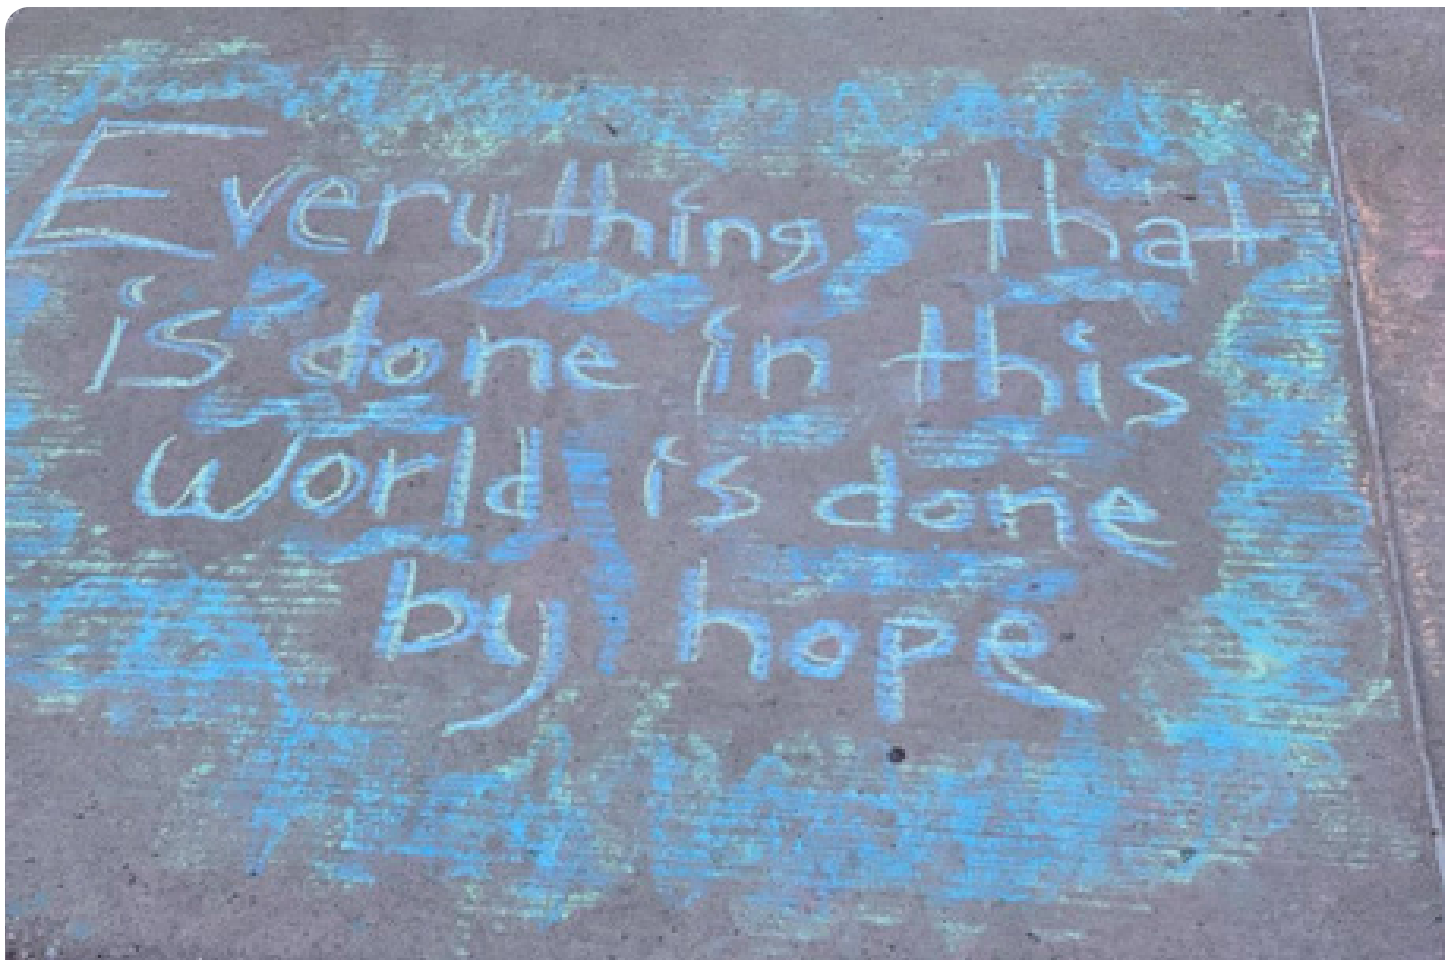 Everything that
is done in this
world is done
by hope